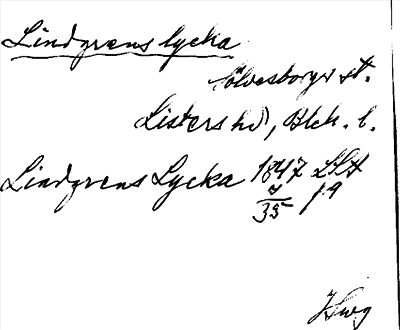 Lindgrens lycka
Sölvesborgs st.
Listers hd, Blek. l.
Lindgrens Lycka 1847 LSA
35 p 9